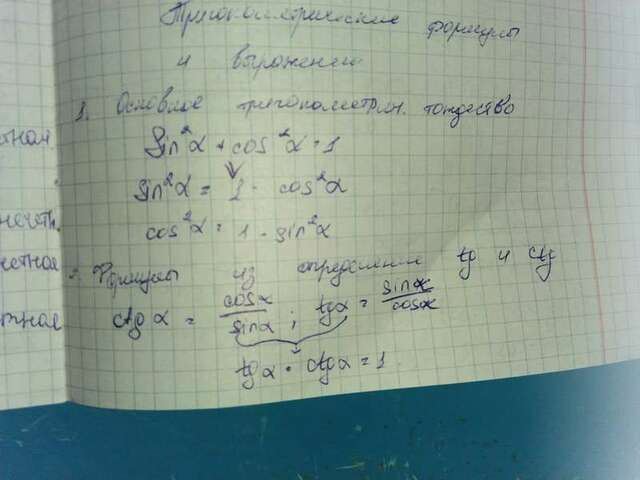 Тригонометрические формулы
и выражения
1. Основное тригонометрич. тождество
Sin²α + cos²α = 1
sin²α = 1 - cos²α
cos²α = 1 - sin²α
2. Формулы из определения tg и ctg
ctg α = cosα/sinα ; tgα = sinα/cosα
tgα · ctgα = 1
тная
нечетн.
четная
тная